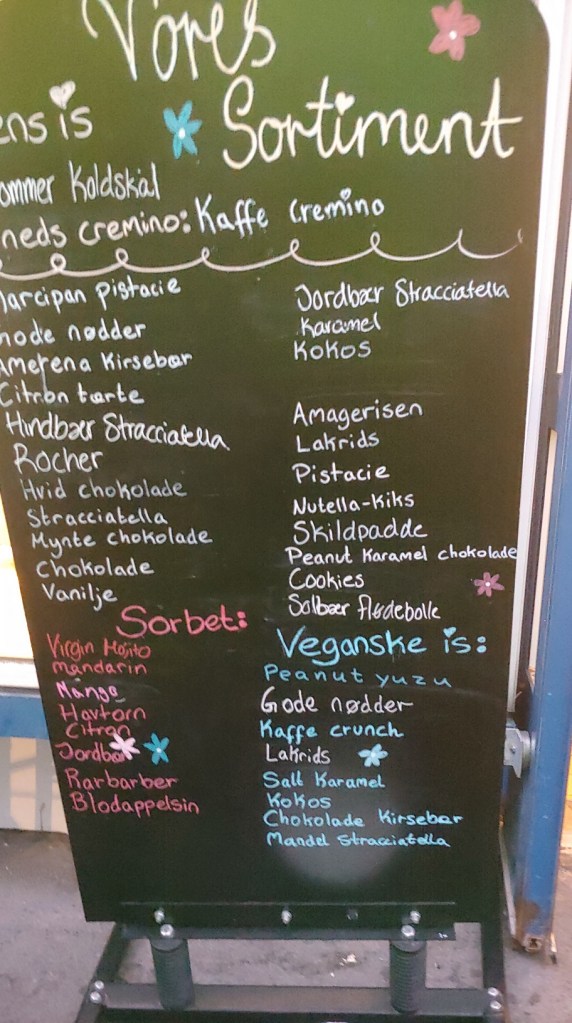 Vores
Sortiment
ens is
ommer Koldskål
neds cremino: Kaffe Cremino
arcipan Pistacie
ode nødder
Amerena Kirsebær
Citron tærte
Hindbær Stracciatella
Rocher
Hvid chokolade
Stracciatella
Mynte chokolade
Chokolade
Vanilje
Jordbær Stracciatella
Karamel
Kokos
Amagerisen
Lakrids
Pistacie
Nutella-Kiks
Skildpadde
Peanut Karamel chokolade
Cookies
Solbær flødebolle
Sorbet:
Virgin Mojito
mandarin
Mango
Havtorn
Citron
Jordbær
Rarbarber
Blodappelsin
Veganske is:
Peanut yuzu
Gode nødder
Kaffe crunch
Lakrids
Salt Karamel
Kokos
Chokolade Kirsebær
Mandel Stracciatella